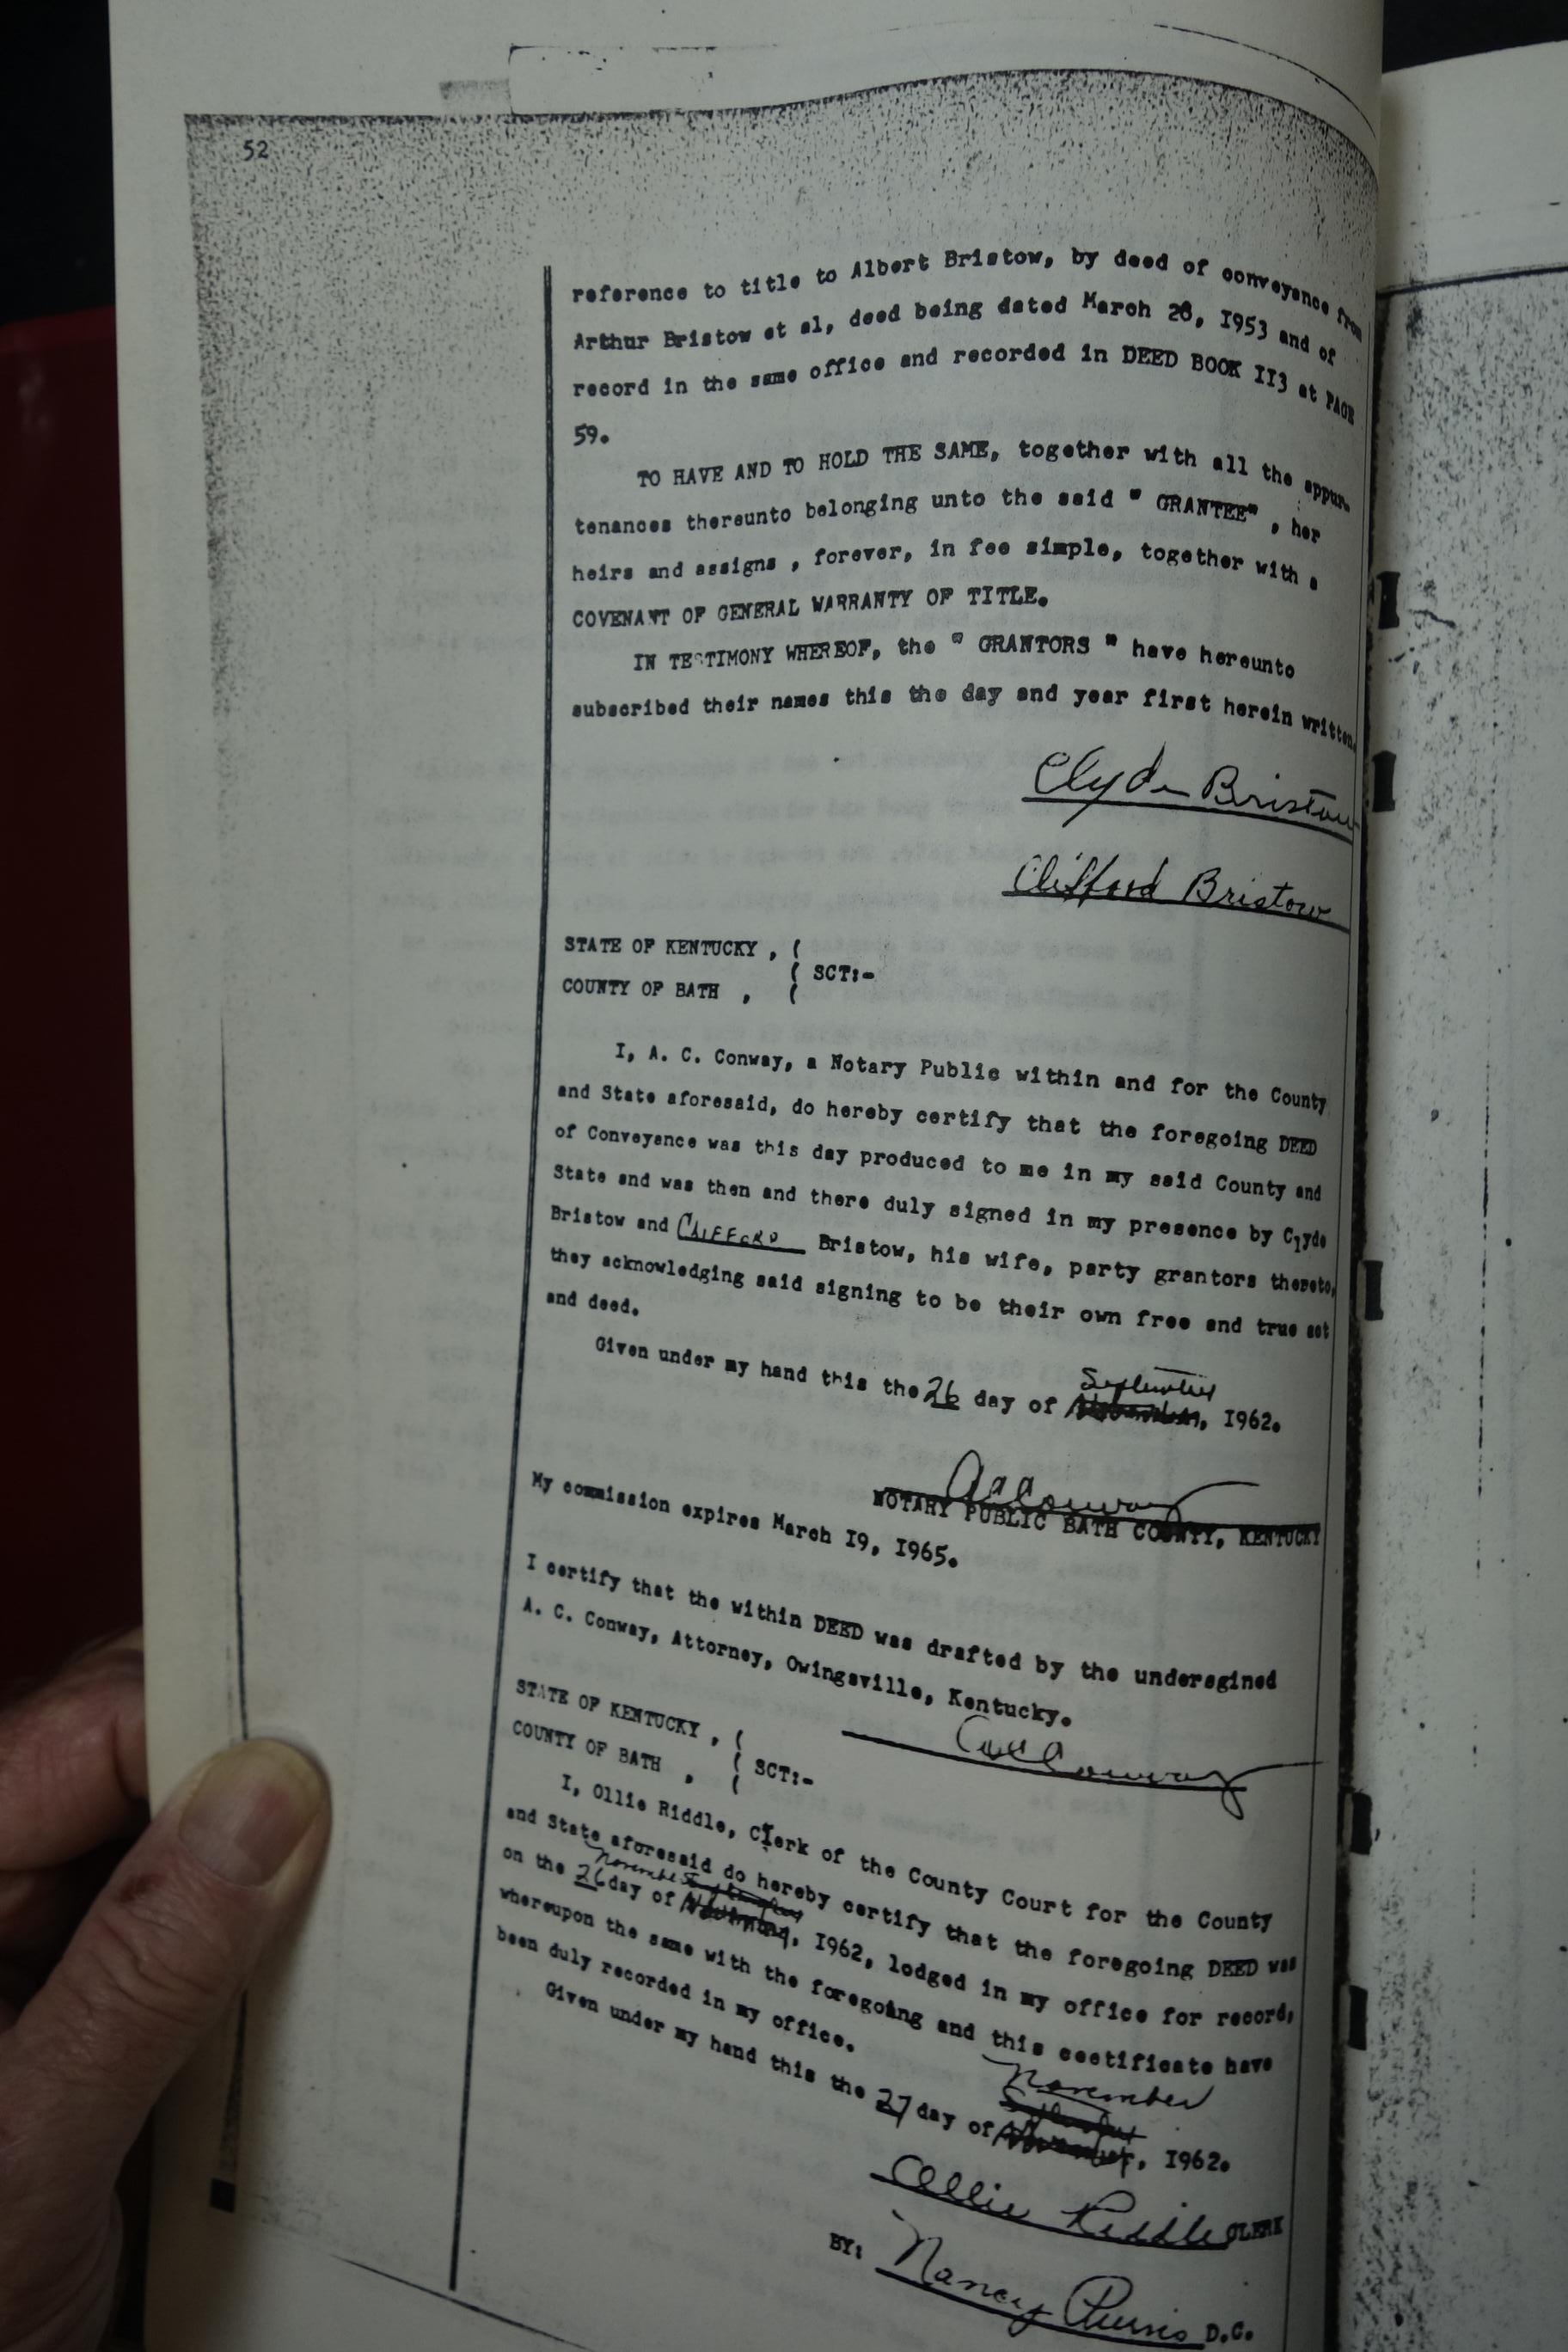 52
reference to title to Albert Bristow, by deed of conveyance from
Arthur Bristow et al, deed being dated March 28, I953 and of
record in the same office and recorded in DEED BOOK II3 at PAGE
59.
TO HAVE AND TO HOLD THE SAME, together with all the appur-
tenances thereunto belonging unto the said " GRANTEE" , her
heirs and assigns , forever, in fee simple, together with a
COVENANT OF GENERAL WARRANTY OF TITLE.
IN TESTIMONY WHEREOF, the " GRANTORS " have hereunto
subscribed their names this the day and year first herein written.
Clyde Bristow
Clifford Bristow
STATE OF KENTUCKY , (
( SCT:-
COUNTY OF BATH , (
I, A. C. Conway, a Notary Public within and for the County
and State aforesaid, do hereby certify that the foregoing DEED
of Conveyance was this day produced to me in my said County and
State and was then and there duly signed in my presence by Clyde
Bristow and CLIFFORD Bristow, his wife, party grantors thereto,
they acknowledging said signing to be their own free and true act
and deed.
September
Given under my hand this the 26 day of November, I962.
A C Conway
NOTARY PUBLIC BATH COUNTY, KENTUCKY
My commission expires March I9, I965.
I certify that the within DEED was drafted by the undersgined
A. C. Conway, Attorney, Owingsville, Kentucky.
A C Conway
STATE OF KENTUCKY , (
( SCT:-
COUNTY OF BATH , (
I, Ollie Riddle, Clerk of the County Court for the County
and State aforesaid do hereby certify that the foregoing DEED was
November September
on the 26 day of November, I962, lodged in my office for record,
whereupon the same with the foregoing and this cectificate have
been duly recorded in my office.
November
September
Given under my hand this the 27 day of November, I962.
Ollie Riddle CLERK
BY: Nancy D.C.